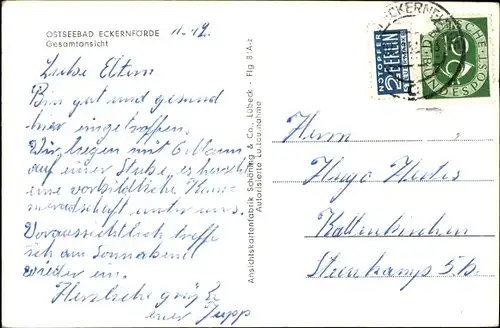 OSTSEEBAD ECKERNFÖRDE
Gesamtansicht
Liebe Eltern
Bin gut und gesund
hier eingetroffen.
Wir liegen mit 6 Mann
auf einer Stube, es herscht
eine vorbildliche Kame-
radschaft unter uns.
Voraussichtlich treffe
ich am Sonnabend
wieder ein.
Herzliche Grüße
euer Jupp
Ansichtskartenfabrik Schöning & Co., Lübeck · Flg 81 A-z
Autorisierte Luftaufnahme
NOTOPFER
2 BERLIN
STEUERMARKE
DEUTSCHE
BUNDESPOST
Herrn
Hugo
Kaltenkirchen